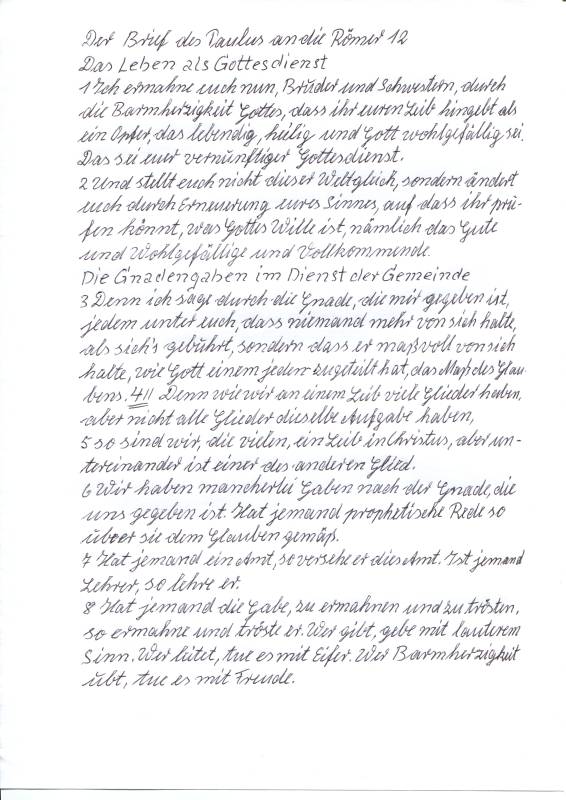 Der Brief des Paulus an die Römer 12
Das Leben als Gottesdienst
1 Ich ermahne euch nun, Brüder und Schwestern, durch
die Barmherzigkeit Gottes, dass ihr euren Leib hingebt als
ein Opfer, das lebendig, heilig und Gott wohlgefällig sei.
Das sei euer vernünftiger Gottesdienst.
2 Und stellt euch nicht dieser Welt gleich, sondern ändert
euch durch Erneuerung eures Sinnes, auf dass ihr prü-
fen könnt, was Gottes Wille ist, nämlich das Gute
und Wohlgefällige und Vollkommene.
Die Gnadengaben im Dienst der Gemeinde
3 Denn ich sage durch die Gnade, die mir gegeben ist,
jedem unter euch, dass niemand mehr von sich halte,
als sich's gebührt, sondern dass er maßvoll von sich
halte, wie Gott einem jeden zugeteilt hat, das Maß des Glau-
bens. 4 || Denn wie wir an einem Leib viele Glieder haben,
aber nicht alle Glieder dieselbe Aufgabe haben,
5 so sind wir, die vielen, ein Leib in Christus, aber un-
tereinander ist einer des anderen Glied.
6 Wir haben mancherlei Gaben nach der Gnade, die
uns gegeben ist. Hat jemand prophetische Rede so
übe er sie dem Glauben gemäß.
7 Hat jemand ein Amt, so versehe er dies Amt. Ist jemand
Lehrer, so lehre er.
8 Hat jemand die Gabe, zu ermahnen und zu trösten,
so ermahne und tröste er. Wer gibt, gebe mit lauterem
Sinn. Wer leitet, tue es mit Eifer. Wer Barmherzigkeit
übt, tue es mit Freude.